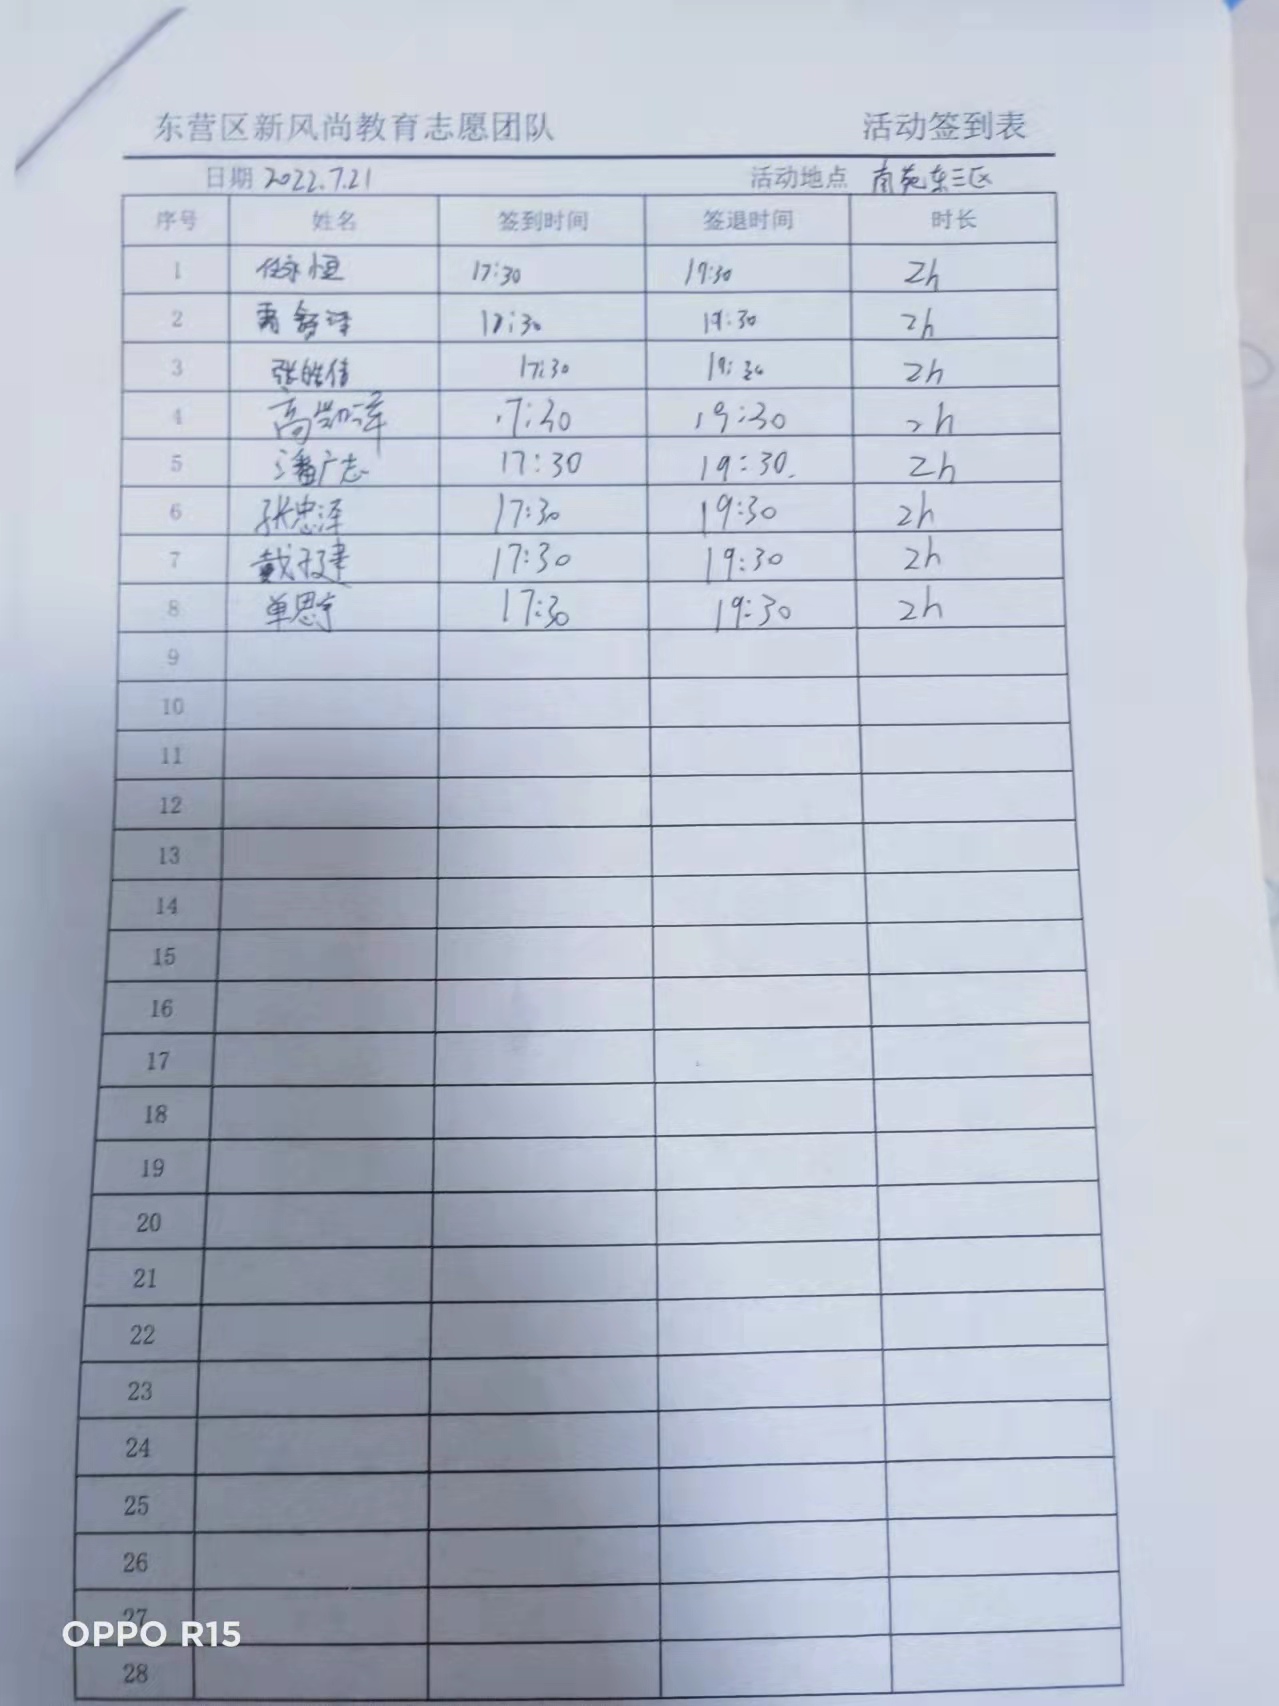 东营区新风尚教育志愿团队 活动签到表
日期 2022.7.21 活动地点 南苑东三区
序号 姓名 签到时间 签退时间 时长
1 任永恒 17:30 19:30 2h
2 17:30 19:30 2h
3 张皓 17:30 19:30 2h
4 高凯泽 17:30 19:30 2h
5 潘广志 17:30 19:30. 2h
6 张忠泽 17:30 19:30 2h
7 戴子建 17:30 19:30 2h
8 单思宇 17:30 19:30 2h
9
10
11
12
13
14
15
16
17
18
19
20
21
22
23
24
25
26
27
OPPO R15
28